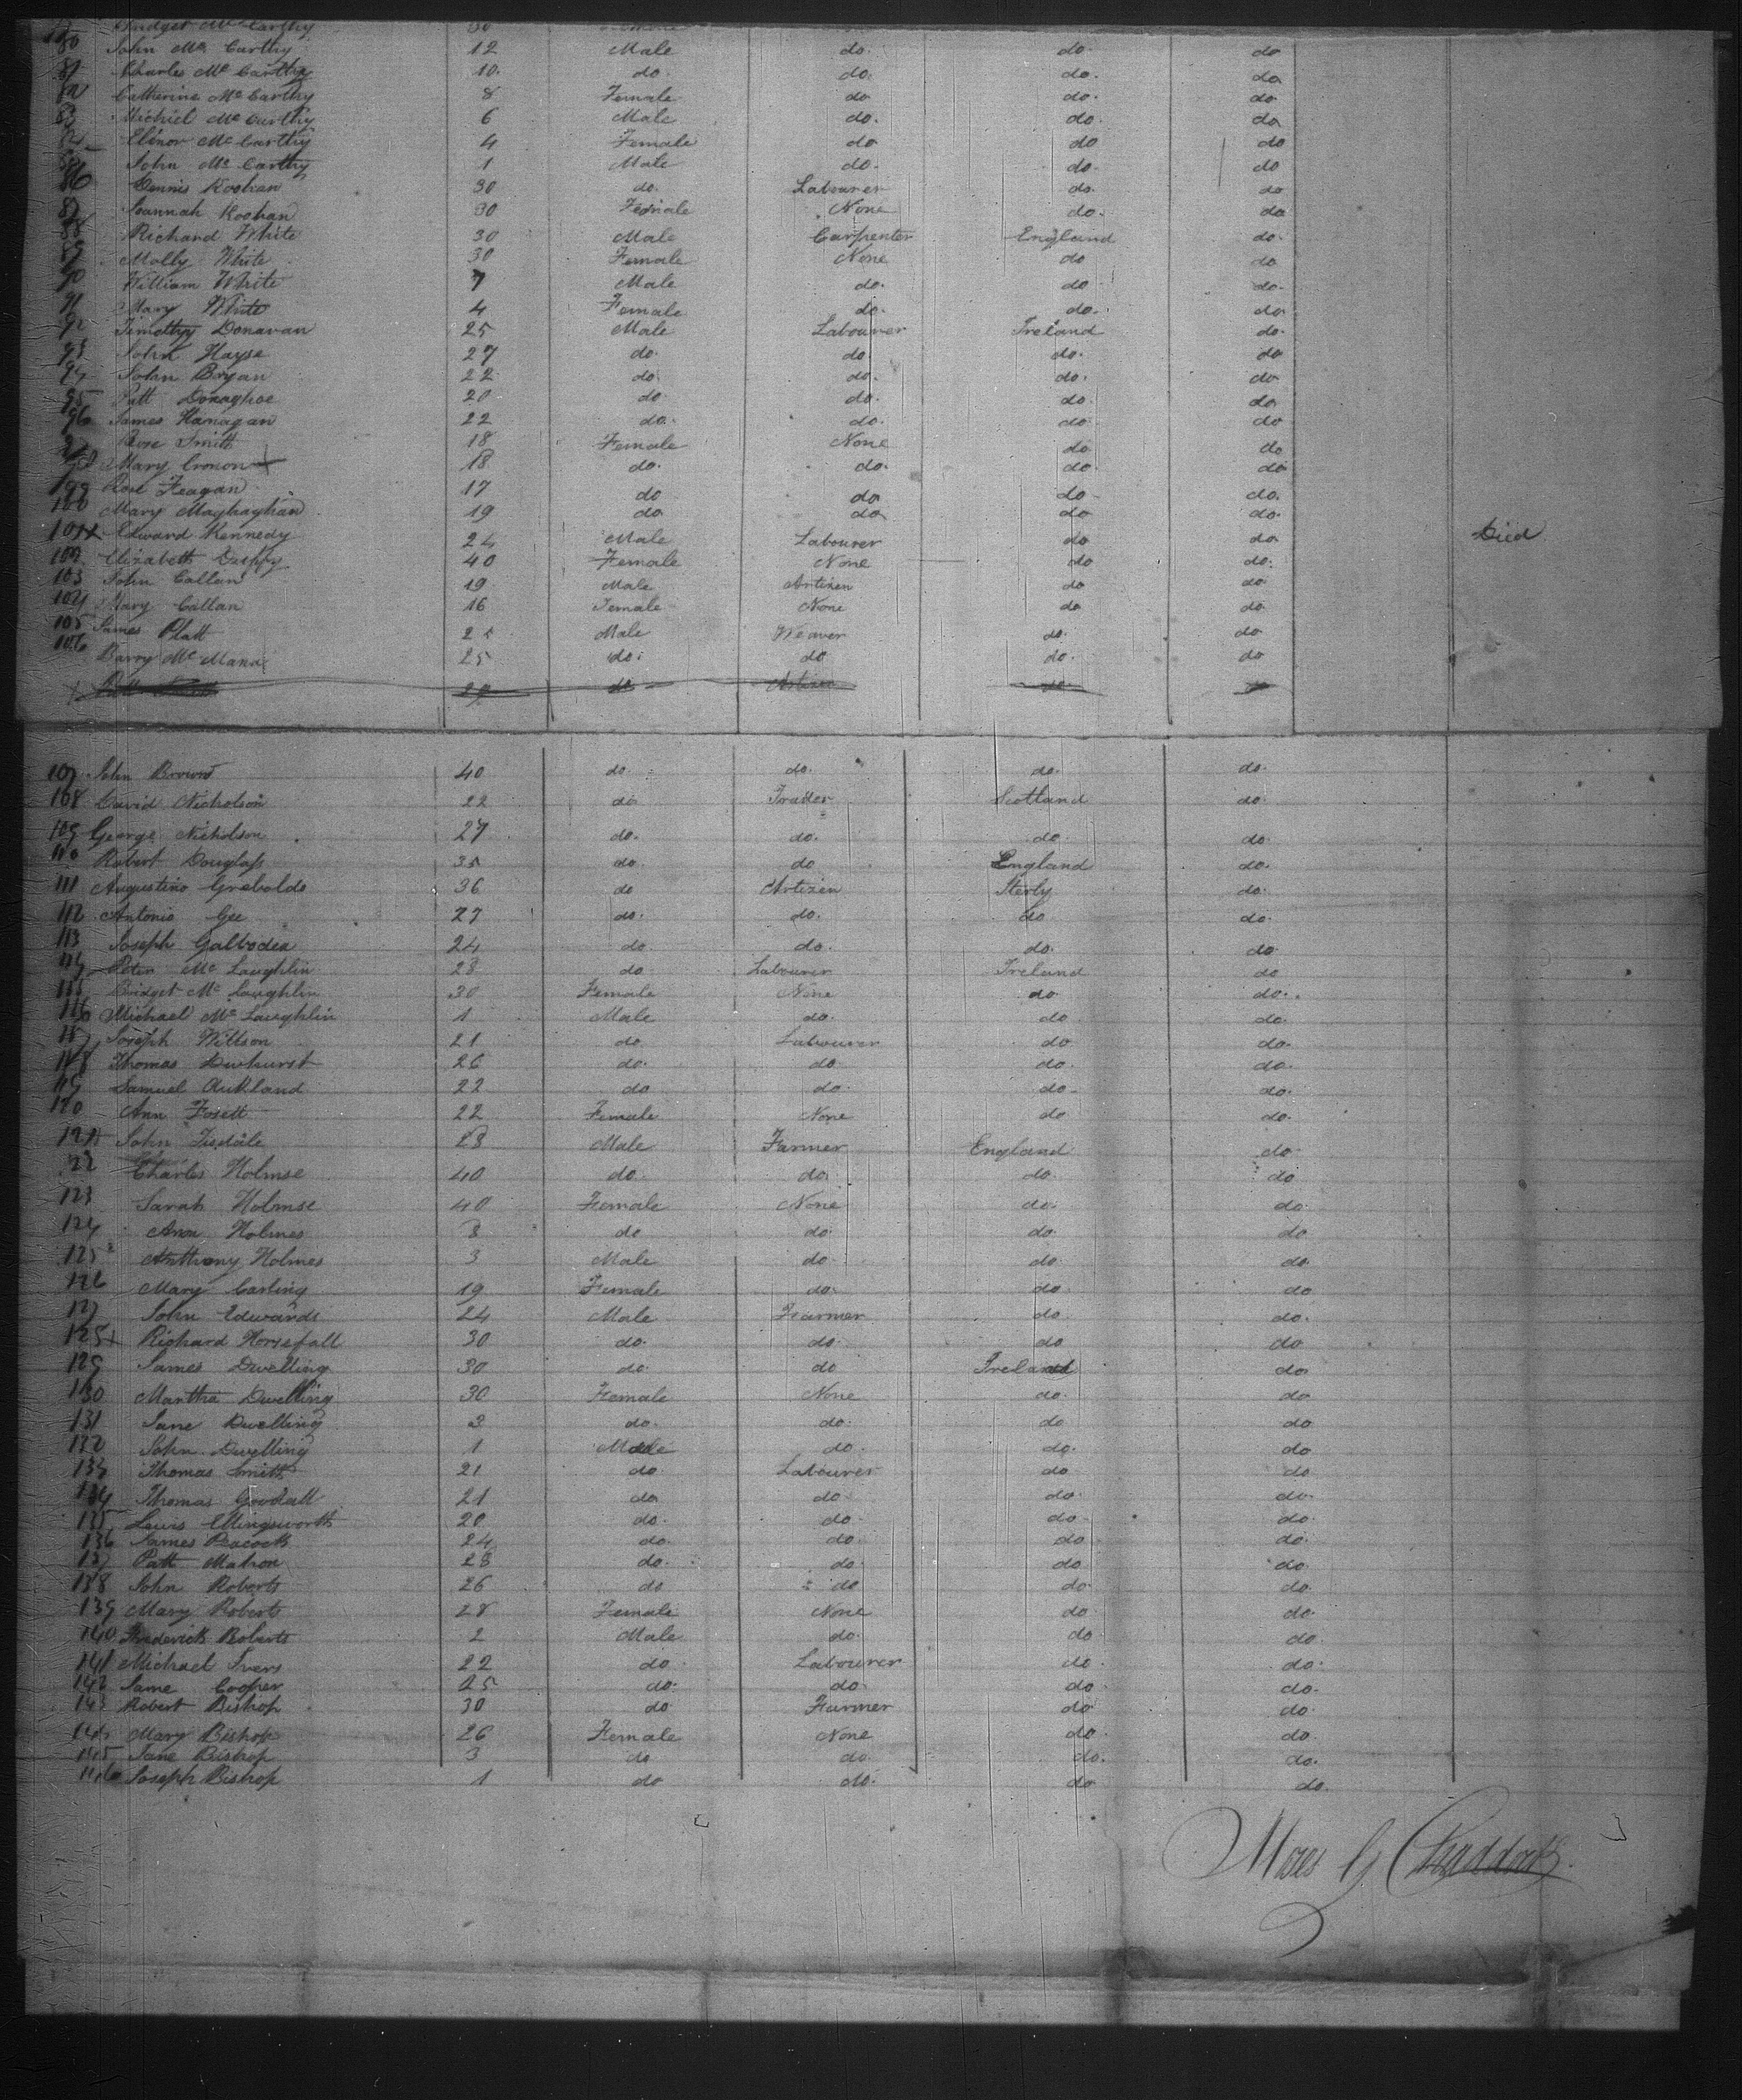 Bridget Mc Carthy 30
80 John Mc Carthy 12 Male do. do. do
81 Charles Mc Carthy 10. do. do. do. do
82 Catherine Mc Carthy 8 Female do do. do
83 Michiel Mc Carthy 6 Male do. do. do
Elenor Mc Carthy 4 Female do do do
John Mc Carthy 1 Male do. do. do
86 Dennis Roohan 30 do. Labourer do. do
87 Hannah Roohan 30 Female None do. do
88 Richard White 30 Male Carpenter England do.
89 Molly White 30 Female None do do
90 William White 7 Male do. do do.
91 Mary White 4 Female do. do. do
92 Timothy Donavan 25 Male Labourer Ireland do.
93 John Hayse 27 do. do. do. do
94 John Bryan 22 do. do. do. do
95 Patt Donaghoe 20 do do. do. do
96 James Hanagan 22 do. do. do do
97 Rose Smith 18 Female None do do
98 Mary Cronon 18 do. do. do. do
99 Rose Feagan 17 do do do. do.
100 Mary Maghaghan 19 do do do do.
101 x Edward Kennedy 24 Male Labourer do do Died
102 Elizabeth Duffy 40 Female None do do.
103 John Callan 19 Male Artizen do do
104 Mary Callan 16 Female None do do
105 James Platt 25 Male Weaver do. do
106 Barry Mc Mana 25 do. do do. do
107 John Brown 40 do do. do. do.
108 David Nicholson 22 do Trader Scotland do.
109 George Nicholson 27 do. do. do do
110 Robert Douglass 35 do. do England do.
111 Augustino Grebaldo 36 do Artizen Iterly do.
112 Antonio Gee 27 do. do. do do.
113 Joseph Galbodea 24 do do. do. do
114 Peter Mc Laughlin 28 do Labourer Ireland do
115 Bridget Mc Laughlin 30 Female None do do.
116 Michael Mc Laughlin 1 Male do. do do.
117 Joseph Willson 21 do Labourer do do.
118 Thomas Dewhurst 26 do. do do. do.
119 Samuel Aukland 22 do do. do. do.
120 Ann Fosett 22 Female None do do.
121 John Tisdale 23 Male Farmer England do
122 Charles Holmse 40 do. do. do. do
123 Sarah Holmse 40 Female None do. do
124 Ann Holmes 8 do do. do. do
125 Anthony Holmes 3 Male do. do. do
126 Mary Carling 19 Female do. do. do
127 John Edwards 24 Male Farmer do do.
128 x Richard Horsefall 30 do. do. do do
129 James Dwelling 30 do. do Ireland do
130 Martha Dwelling 30 Female None do. do
131 Jane Dwelling 3 do. do. do do
132 John Dwelling 1 Male do. do. do
133 Thomas Smith 21 do. Labourer do do
134 Thomas Goodall 21 do do. do. do.
135 Lewis Ellingsworth 20 do. do. do. do.
136 James Peacock 24 do. do. do do.
137 Patt Mahon 23 do. do. do do.
138 John Roberts 26 do do do. do.
139 Mary Roberts 28 Female None do do.
140 Frederick Roberts 2 Male do. do do.
141 Michael Ivers 22 do Labourer do. do.
142 Jame Cooper 25 do. do. do do.
143 Robert Bishop 30 do Farmer do do.
144 Mary Bishop 26 Female None do. do.
145 Jane Bishop 3 do do. do. do.
146 Joseph Bishop 1 do do. do do.
Moses G Chaddock